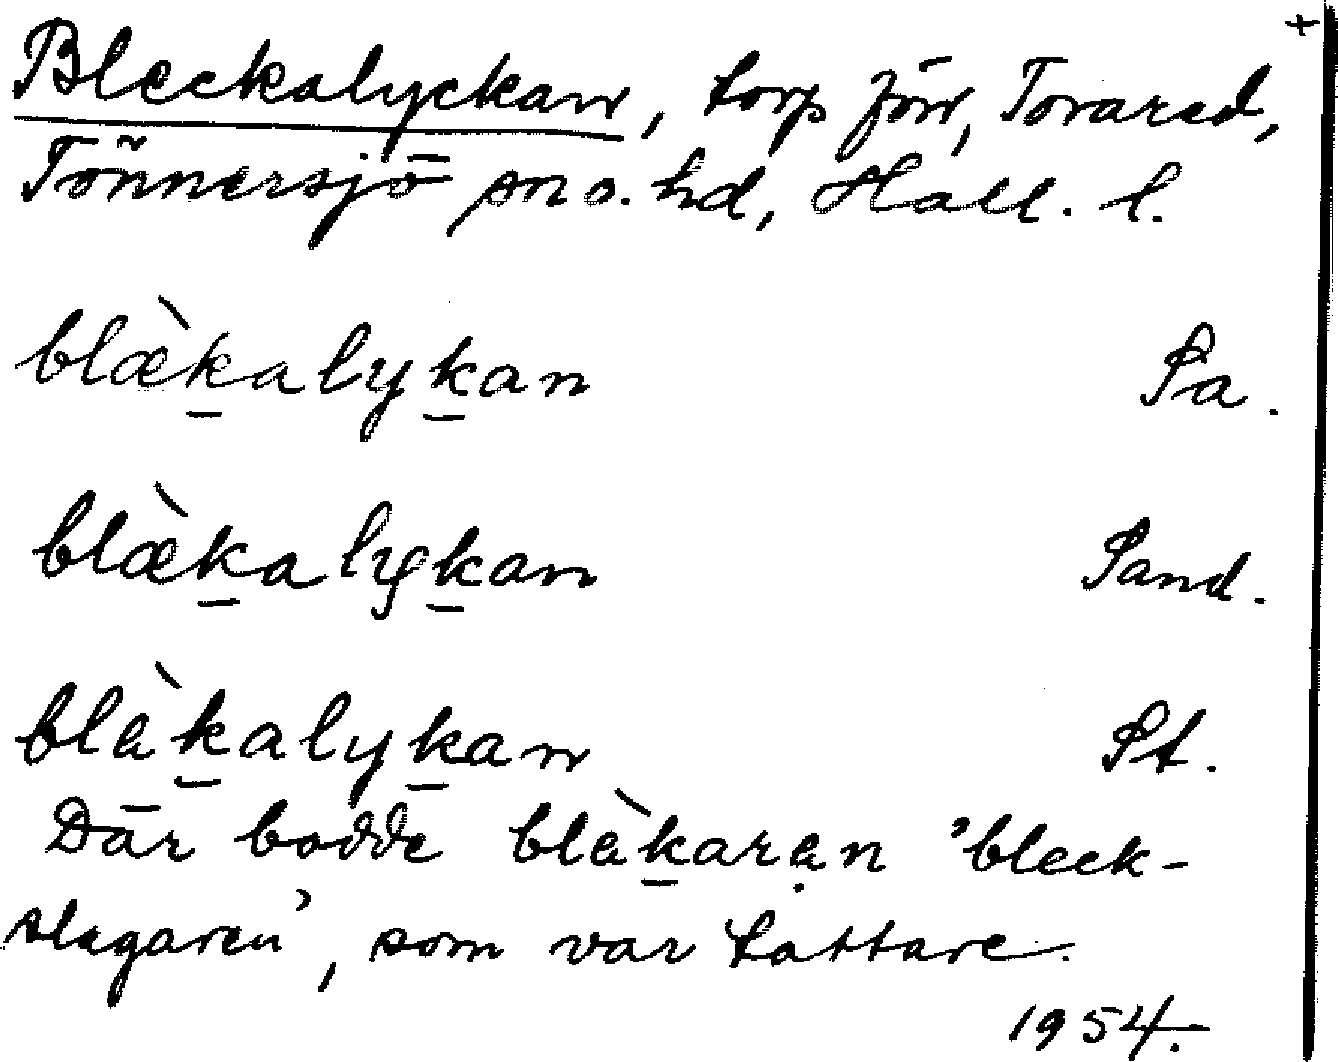 +
Bleckalyckan, torp förr, Tovared,
Tönnersjö sn o. hd, Hall. l.
blæ̀k̲alyk̲an Sa.
blæ̀k̲alyk̲an Sand.
blàk̲alyk̲an St.
Där bodde blàk̲arạn 'bleck-
slagaren', som var tattare.
1954.